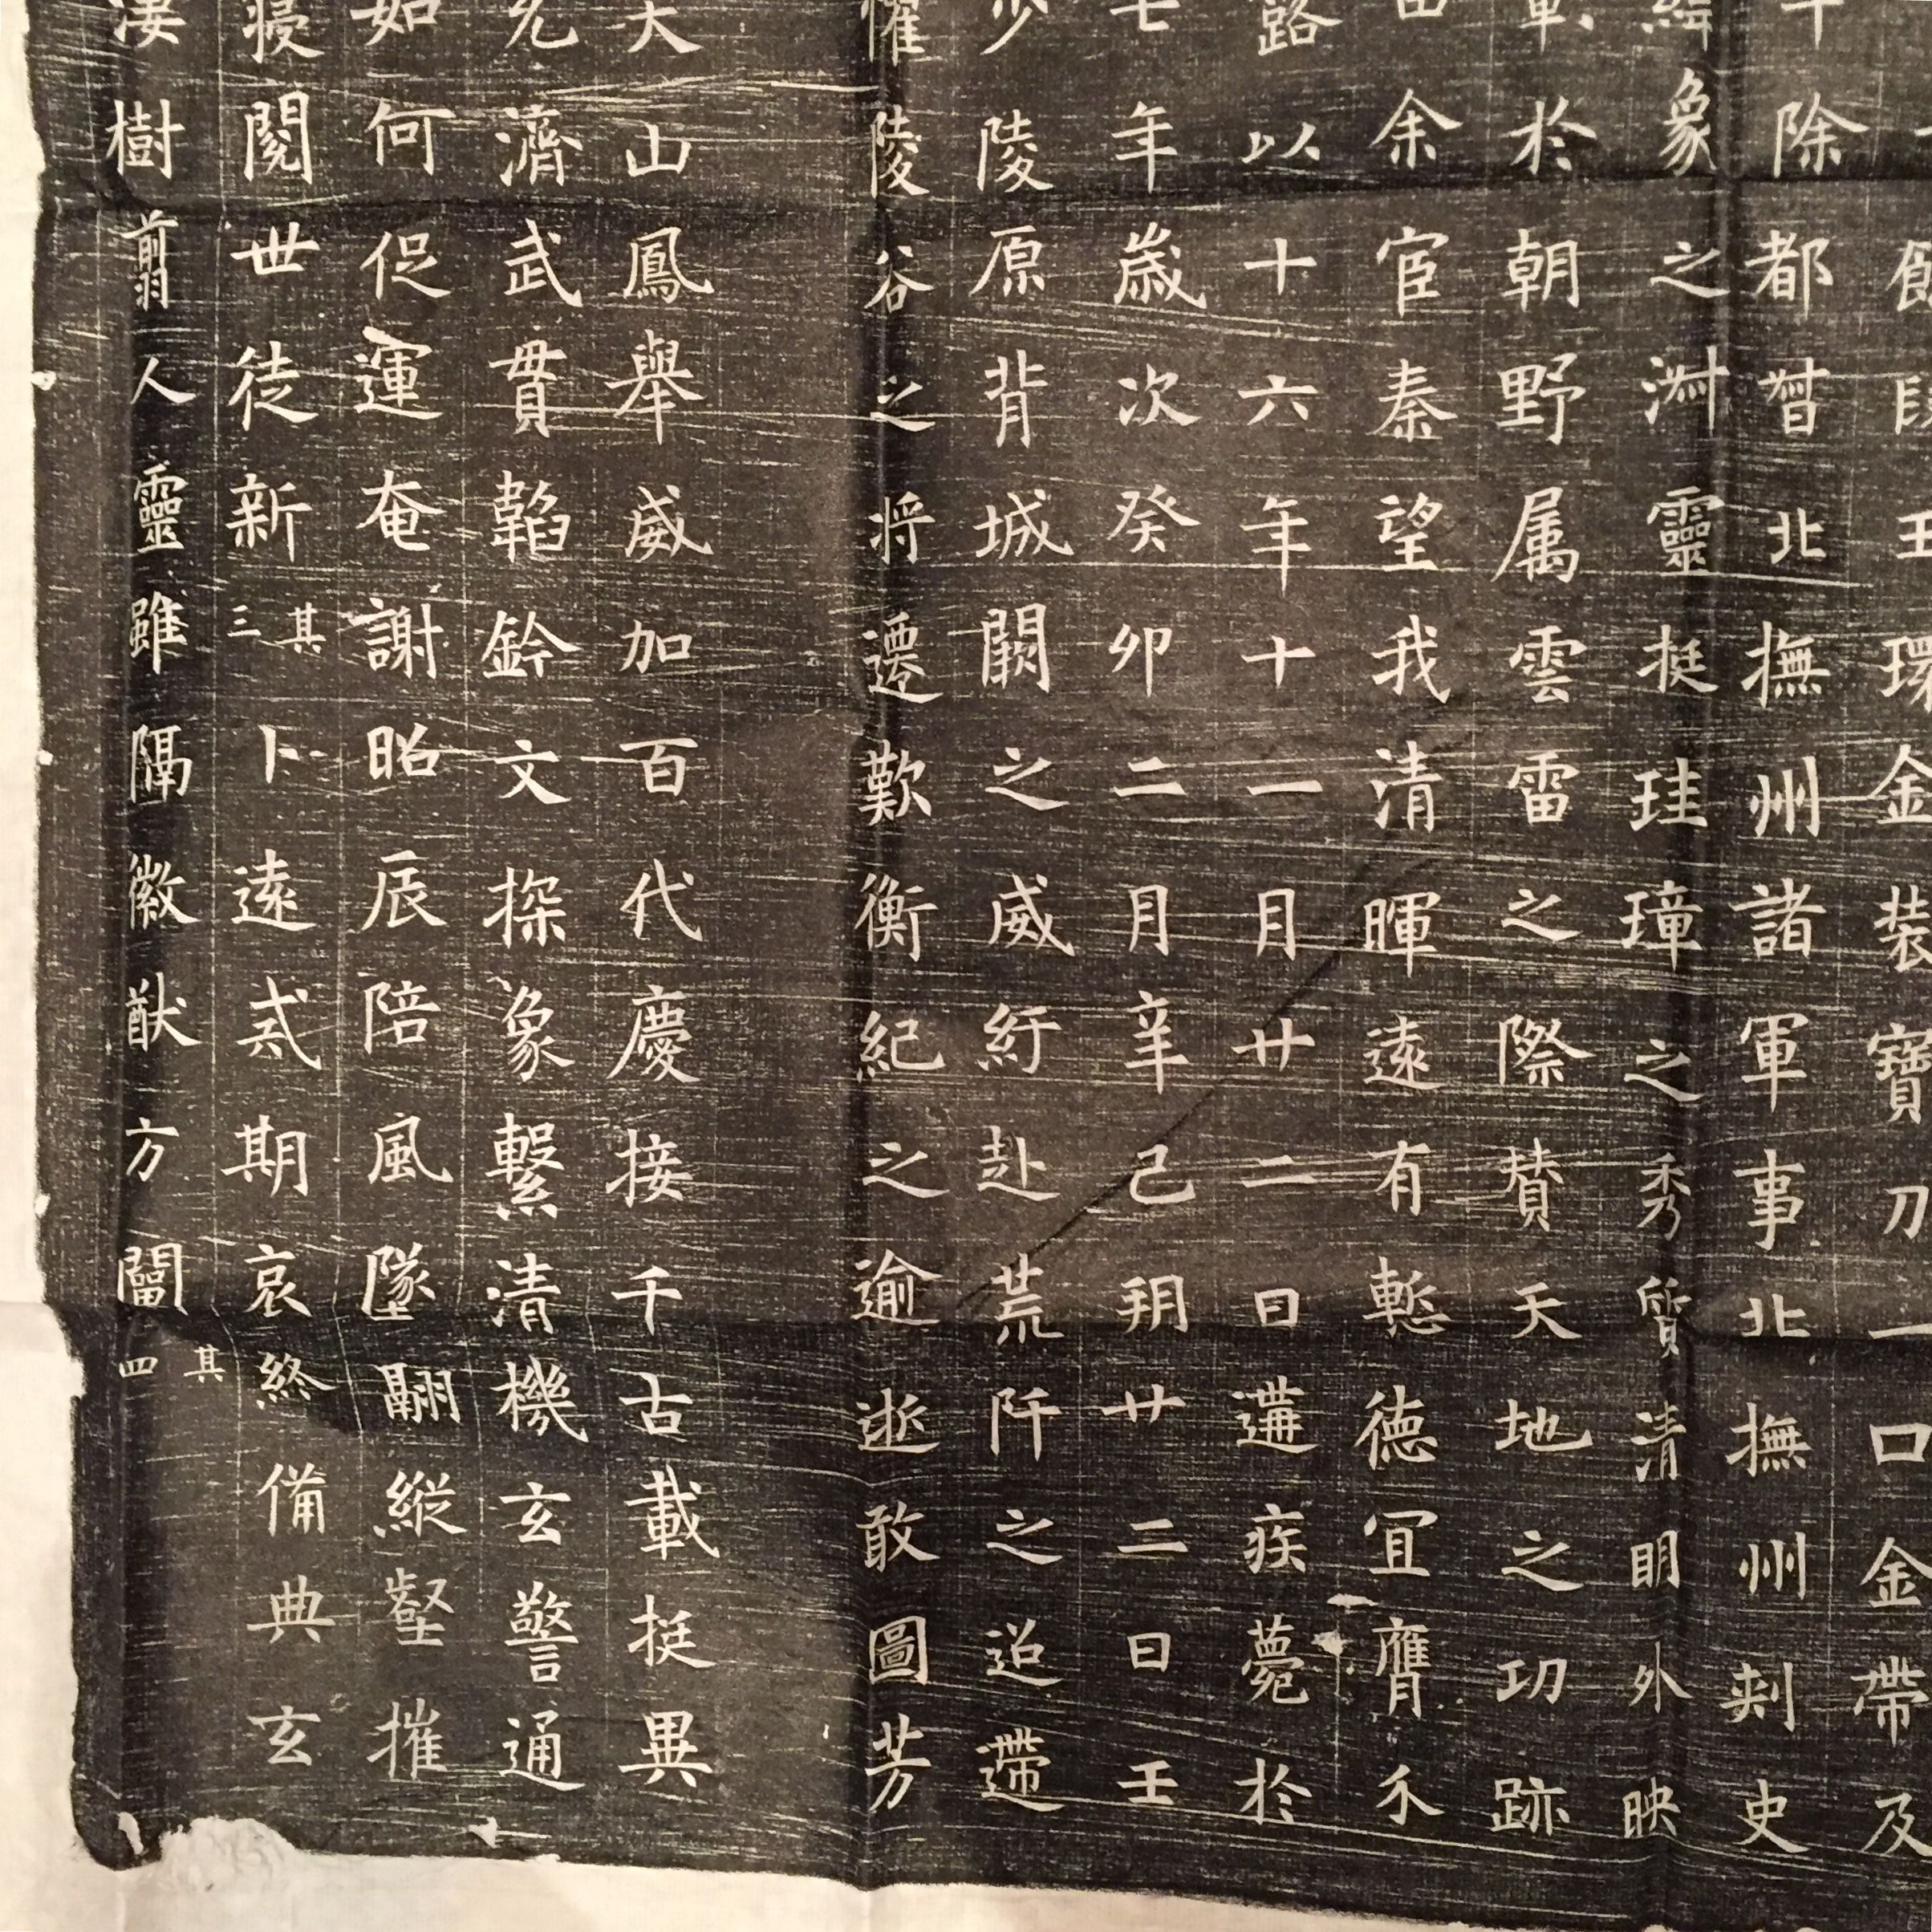 王環金裝寶刀一口金帶及
除都督北撫州諸軍事北撫州刺史
象之渊靈挺珪璋之秀質清明外映
於朝野属雲雷之際賛天地之功跡
余宦秦望我清暉遠有慙德宜膺介
路以十六年十一月廿二日遘疾薨於
七年歲次癸卯二月辛巳朔廿二日壬
少陵原背城闕之威紆赴荒阡之迢遰
懼陵谷之将遷歎衡紀之逾逝敢圖芳
山鳳舉威加百代慶接千古載挺異
允濟武貫韜鈐文探象繫清機玄警通
如何促運奄謝昭辰陪風墜翮縱壑摧
寝閱世徒新其三卜遠戒期哀終備典玄
凄樹翦人靈雖隔徽猷方闡其四